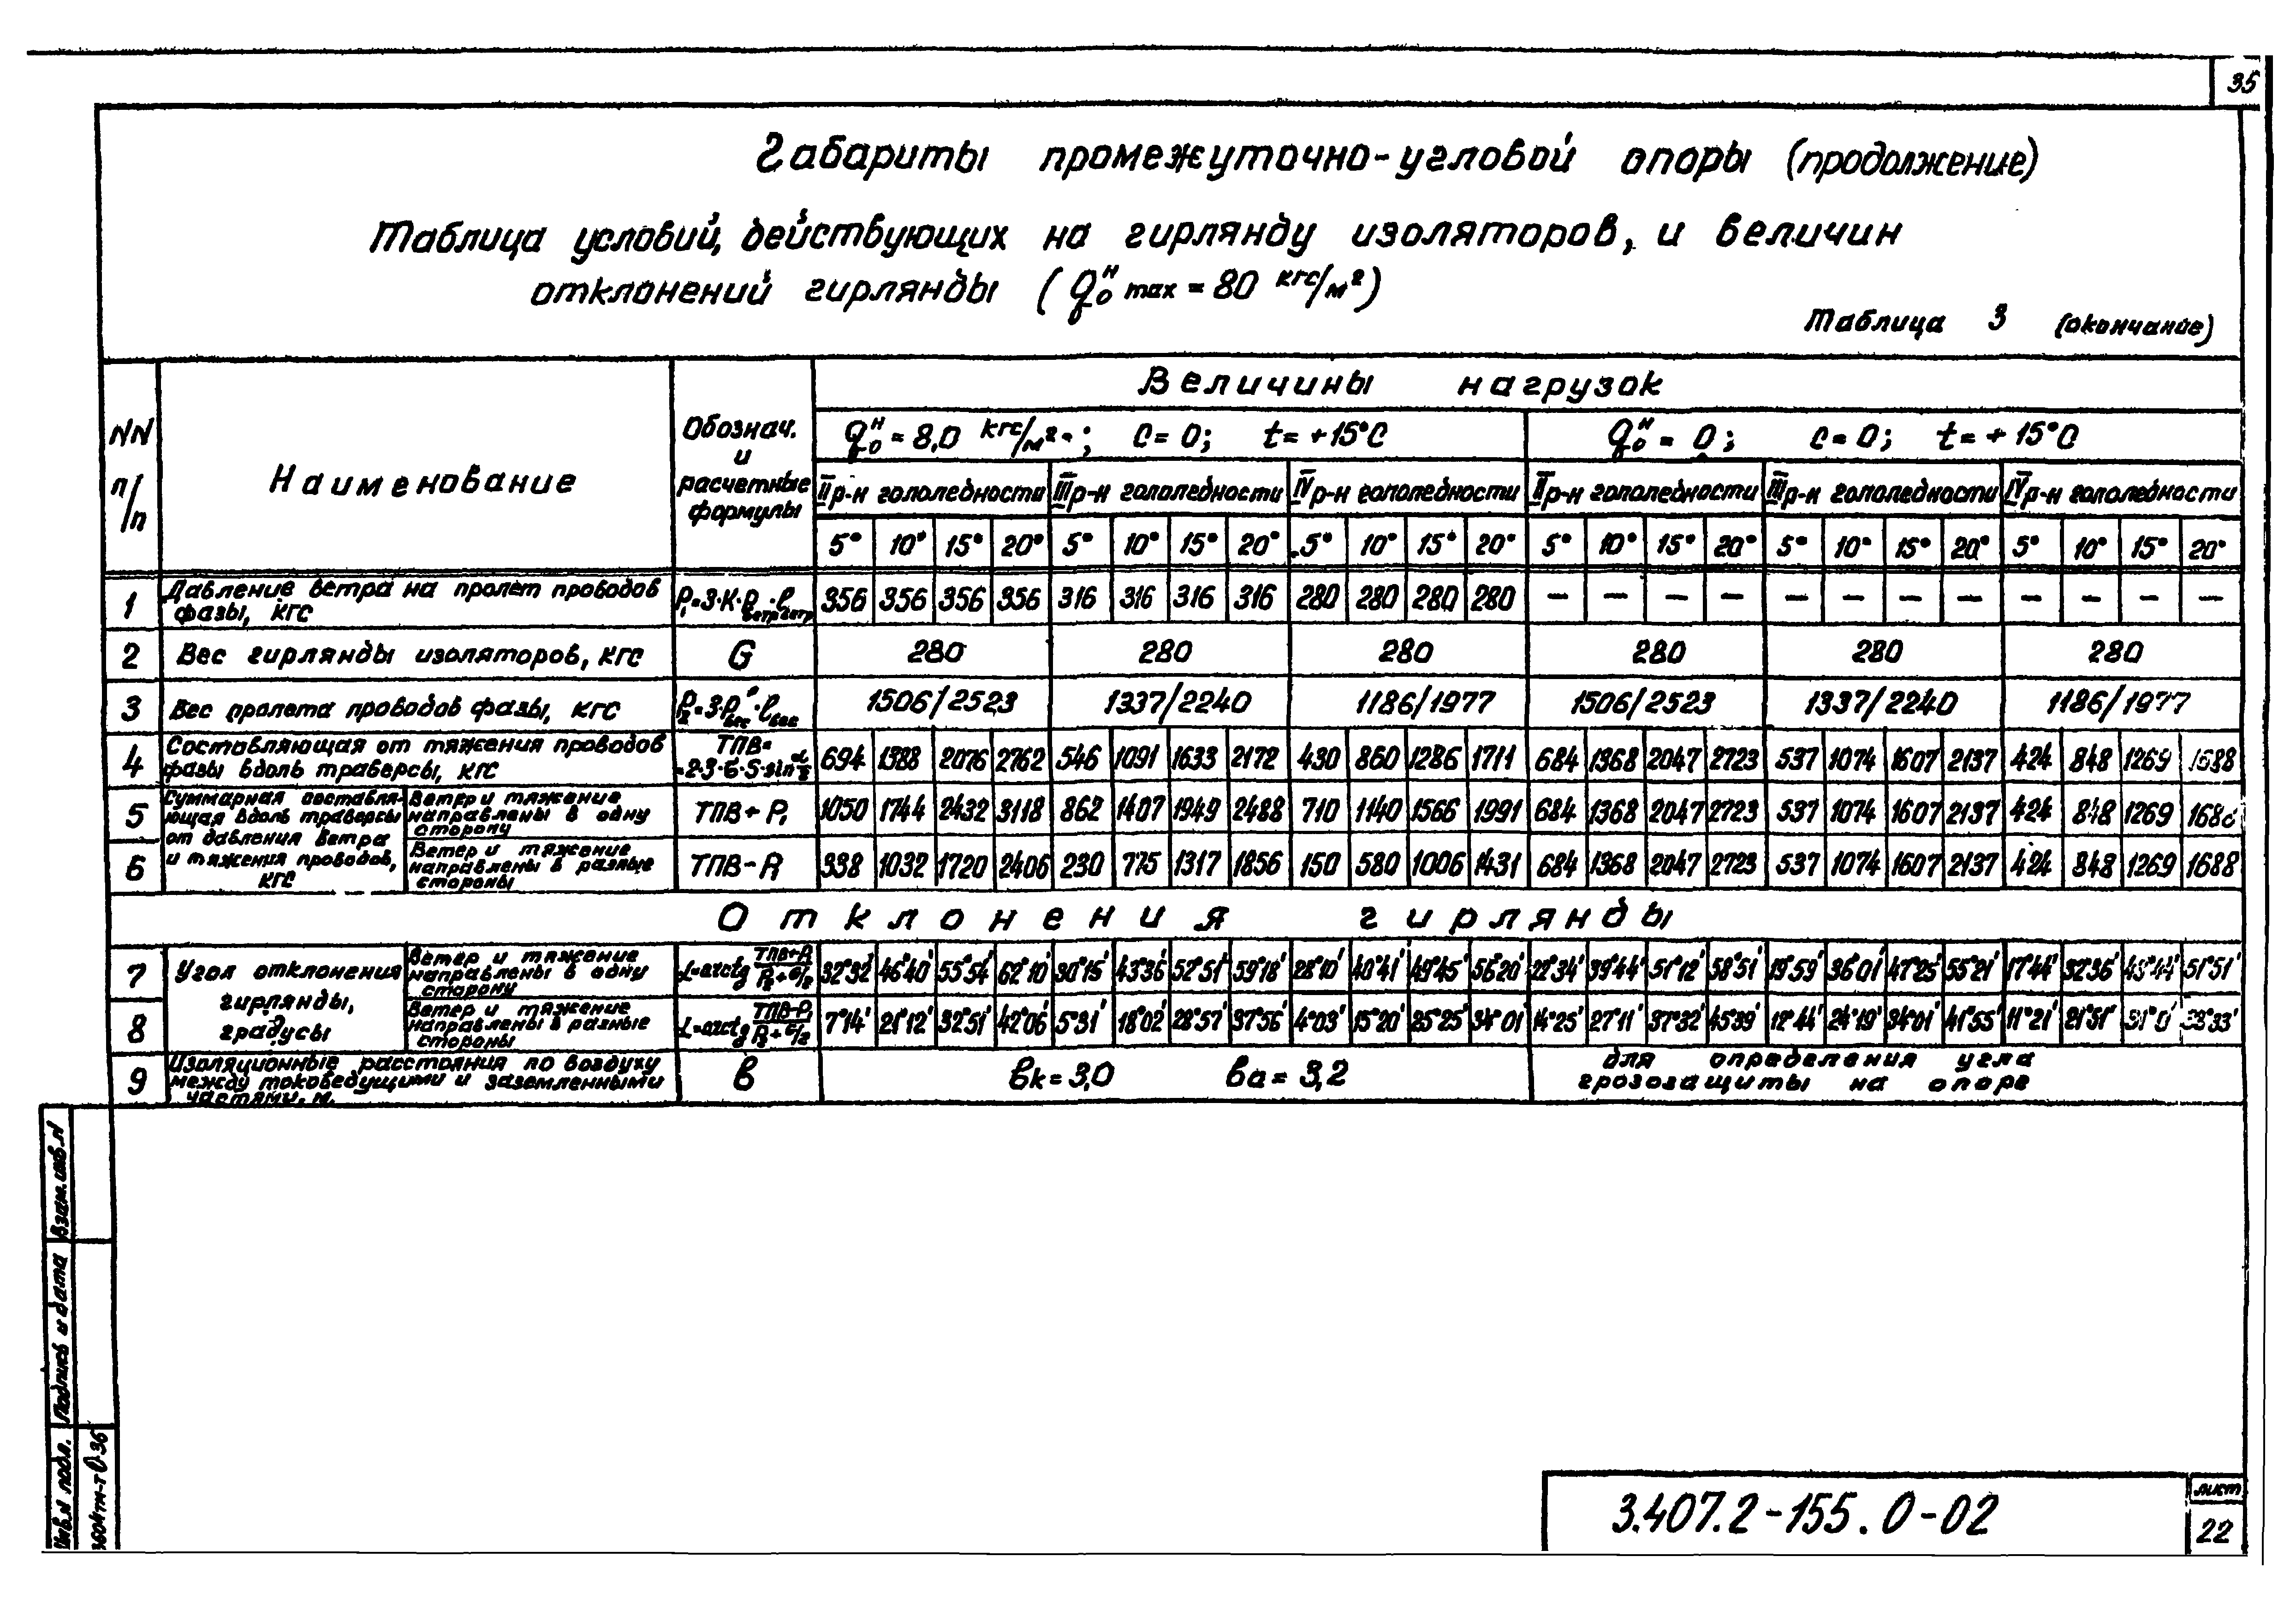 35
Габариты промежуточно-угловой опоры (продолжение)
Таблица условий, действующих на гирлянду изоляторов, и величин
отклонений гирлянды (qᴴ₀ max = 80 кгс/м²)
Таблица 3 (окончание)
NN п/п
Наименование
Обознач. и расчетные формулы
Величины нагрузок
qᴴ₀ = 8,0 кгс/м²; C = 0; t = +15°C
qᴴ₀ = 0; C = 0; t = +15°C
II р-н гололедности III р-н гололедности IV р-н гололедности II р-н гололедности III р-н гололедности IV р-н гололедности
5° 10° 15° 20° 5° 10° 15° 20° 5° 10° 15° 20° 5° 10° 15° 20° 5° 10° 15° 20° 5° 10° 15° 20°
1 Давление ветра на пролет проводов фазы, кгс P₁=3·K·Pветр·lветр 356 356 356 356 316 316 316 316 280 280 280 280 – – – – – – – – – – – –
2 Вес гирлянды изоляторов, кгс G 280 280 280 280 280 280
3 Вес пролета проводов фазы, кгс P₂=3·P·lвес 1506/2523 1337/2240 1186/1977 1506/2523 1337/2240 1186/1977
4 Составляющая от тяжения проводов фазы вдоль траверсы, кгс ТПВ= =2·3·б·S·sin α/2 694 1388 2076 2762 546 1091 1633 2172 430 860 1286 1711 684 1368 2047 2723 537 1074 1607 2137 424 848 1269 1688
Суммарная составляющая вдоль траверсы от давления ветра и тяжения проводов, кгс
5 Ветер и тяжение направлены в одну сторону ТПВ+P₁ 1050 1744 2432 3118 862 1407 1949 2488 710 1140 1566 1991 684 1368 2047 2723 537 1074 1607 2137 424 848 1269 1688
6 Ветер и тяжение направлены в разные стороны ТПВ-P₁ 338 1032 1720 2406 230 775 1317 1856 150 580 1006 1431 684 1368 2047 2723 537 1074 1607 2137 424 848 1269 1688
Отклонения гирлянды
Угол отклонения гирлянды, градусы
7 Ветер и тяжение направлены в одну сторону α=arctg (ТПВ+P₁)/(P₂+G/2) 32°32' 46°40' 55°54' 62°10' 30°15' 43°36' 52°51' 59°18' 28°10' 40°41' 49°45' 56°20' 22°34' 39°44' 51°12' 58°51' 19°59' 36°01' 47°25' 55°21' 17°44' 32°36' 43°44' 51°51'
8 Ветер и тяжение направлены в разные стороны α=arctg (ТПВ-P₁)/(P₂+G/2) 7°14' 21°12' 32°51' 42°06' 5°31' 18°02' 28°57' 37°56' 4°03' 15°20' 25°25' 34°01' 14°25' 27°11' 37°32' 45°39' 12°44' 24°19' 34°01' 41°55' 11°21' 21°51' 38°33'
9 Изоляционные расстояния по воздуху между токоведущими и заземленными частями, м. в вк=3,0 ва=3,2 для определения угла грозозащиты на опоре
Взам. инв. N
Подпись и дата
Инв. N подл.
3.407.2-155.0-02
лист
22